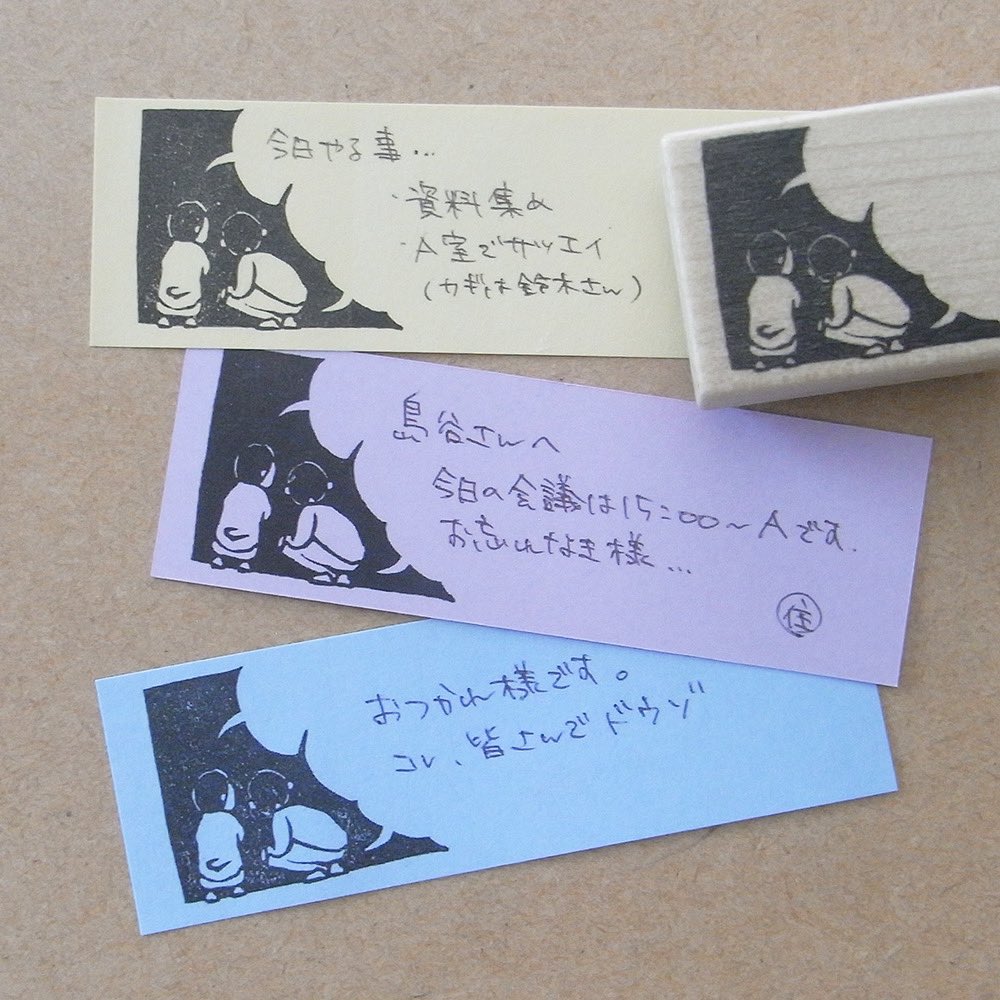 今日やる事...
・資料集め
・A室でサツエイ
(カギは鈴木さん)
島谷さんへ
今日の会議は15:00~Aです.
お忘れなき様...
住
おつかれ様です。
コレ、皆さんでドウゾ